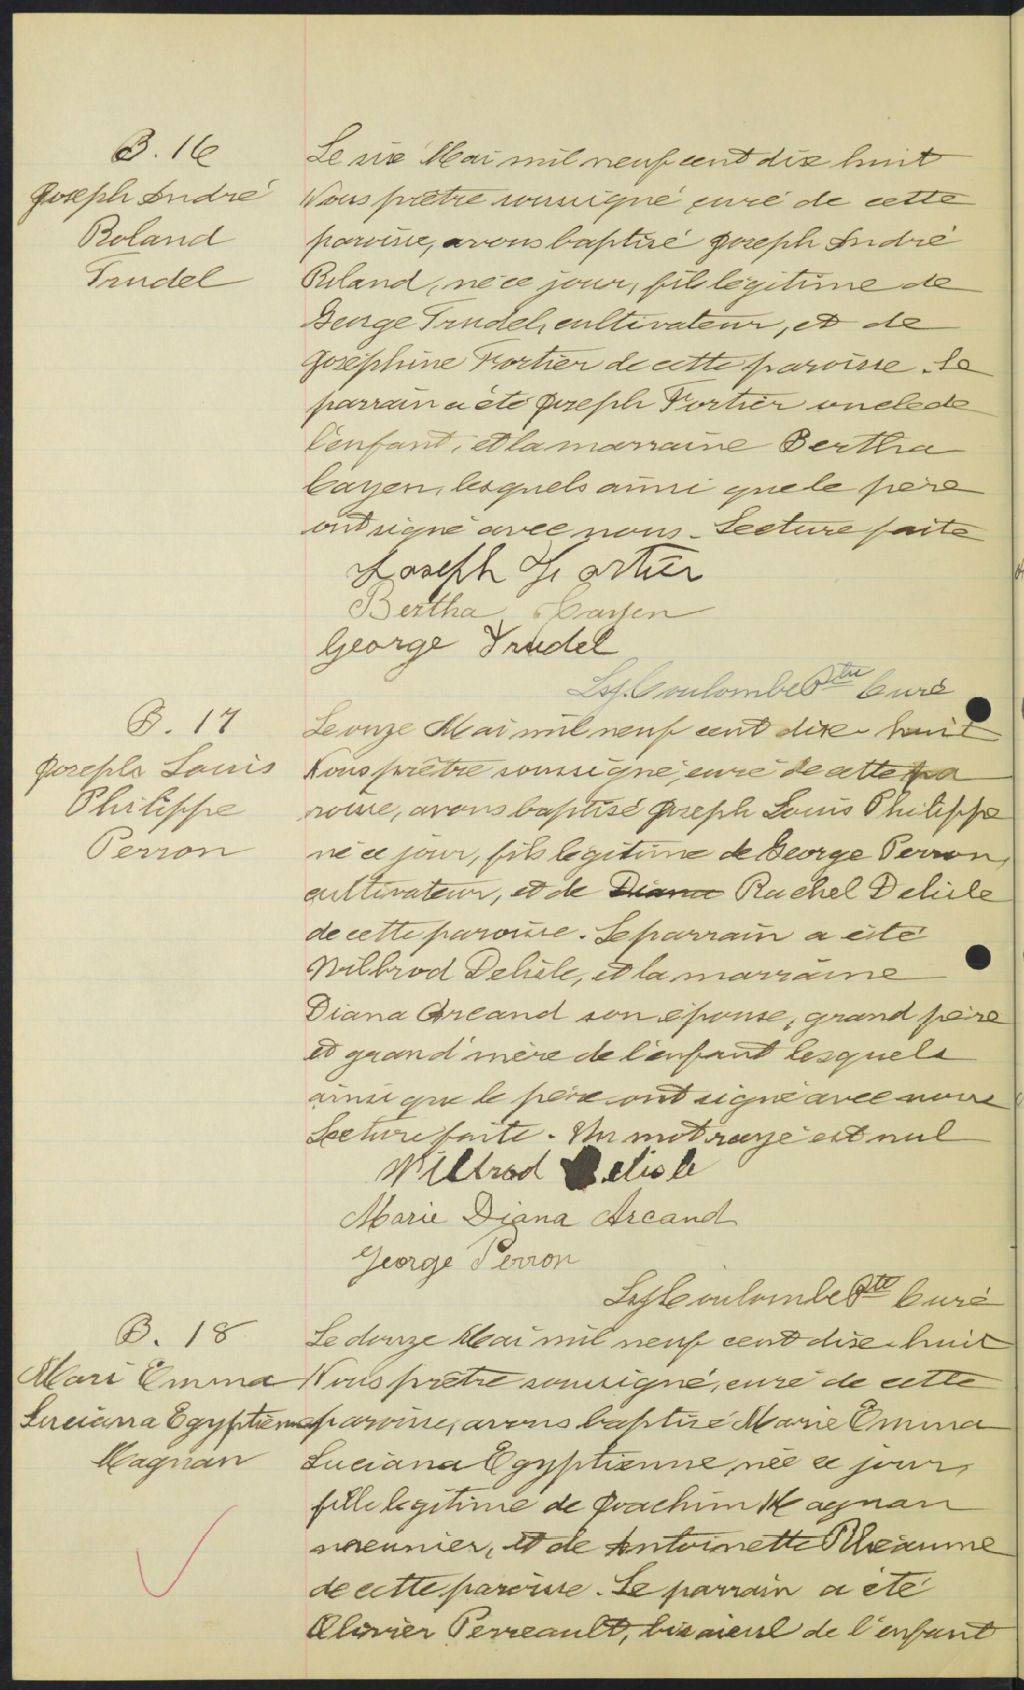 B. 16
Joseph André
Roland
Trudel
Le six Mai mil neuf cent dix huit
Nous prêtre soussigné curé de cette
paroisse, avons baptisé Joseph André
Roland, né ce jour, fils légitime de
George Trudel, cultivateur, et de
Joséphine Fortier de cette paroisse. Le
parrain a été Joseph Fortier oncle de
l'enfant, et la marraine Bertha
Cayen, lesquels ainsi que le père
ont signé avec nous. Lecture faite
Joseph Fortier
Bertha Cayen
George Trudel
Ls J. Coulombe Ptre Curé
B. 17
Joseph Louis
Philippe
Perron
Le onze Mai mil neuf cent dix-huit
Nous prêtre soussigné, curé de cette pa
roisse, avons baptisé Joseph Louis Philippe
né ce jour, fils légitime de George Perron,
cultivateur, et de Diana Rachel Delisle
de cette paroisse. Le parrain a été
Wilbrod Delisle, et la marraine
Diana Arcand son épouse, grand père
et grand'mère de l'enfant lesquels
ainsi que le père ont signé avec nous
Lecture faite. Un mot rayé est nul
Wilbrod Delisle
Marie Diana Arcand
George Perron
Ls J Coulombe Ptre Curé
B. 18
Mari Emma
Luciana Egyptienne
Magnan
Le douze Mai mil neuf cent dix-huit
Nous prêtre soussigné, curé de cette
paroisse, avons baptisé Marie Emma
Luciana Egyptienne, née ce jour,
fille légitime de Joachim Magnan
meunier, et de Antoinette Rhéaume
de cette paroisse. Le parrain a été
Olivier Perreault, bisaieul de l'enfant